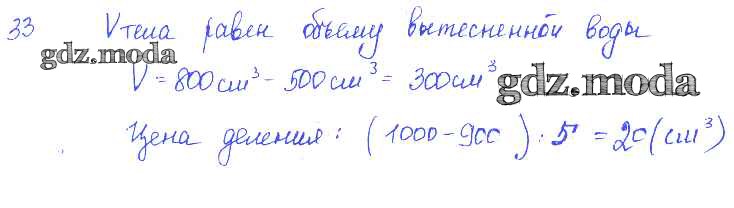 33 Vтела равен объему вытесненной воды
gdz.moda
V = 800 см³ - 500 см³ = 300 см³
gdz.moda
Цена деления: (1000-900) : 5 = 20 (см³)